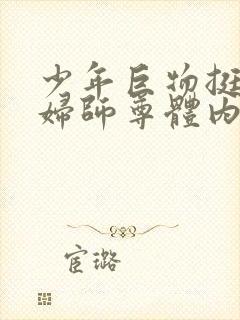 少年巨物挺
婦師尊體內
宦璐